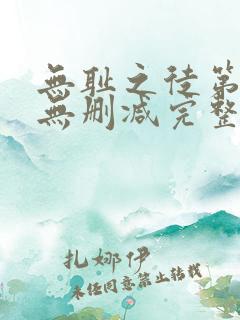 無耻之徒第
無删减完整
扎娜伊
未经同意禁止转载